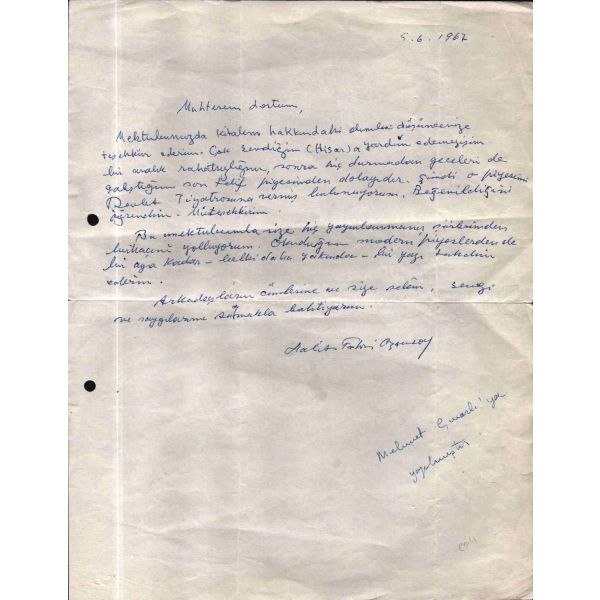 5.6.1967
Muhterem dostum,
Mektubunuzda kitabım hakkındaki olumlu düşüncenize
teşekkür ederim. Çok sevdiğim (Hisar)a yardım edemeyişim
bir aralık rahatsızlığım, sonra hiç durmadan geceleri de
çalıştığım son telif piyesimden dolayıdır. Şimdi o piyesimi
Devlet Tiyatrosuna vermiş bulunuyorum. Beğenildiğini
öğrendim. Müteşekkirim.
Bu mektubumla size hiç yayınlanmamış şiirlerimden
birkaçını yolluyorum. modern piyeslerden de
bir aya kadar - belki daha yakında - bir yazı takdim
ederim.
Arkadaşların cümlesine ve size selâm, sevgi
ve saygılarımı sunmakla bahtiyarım.
Halit Fahri Ozansoy
Mehmet Çınarlı'ya
yazılmıştır